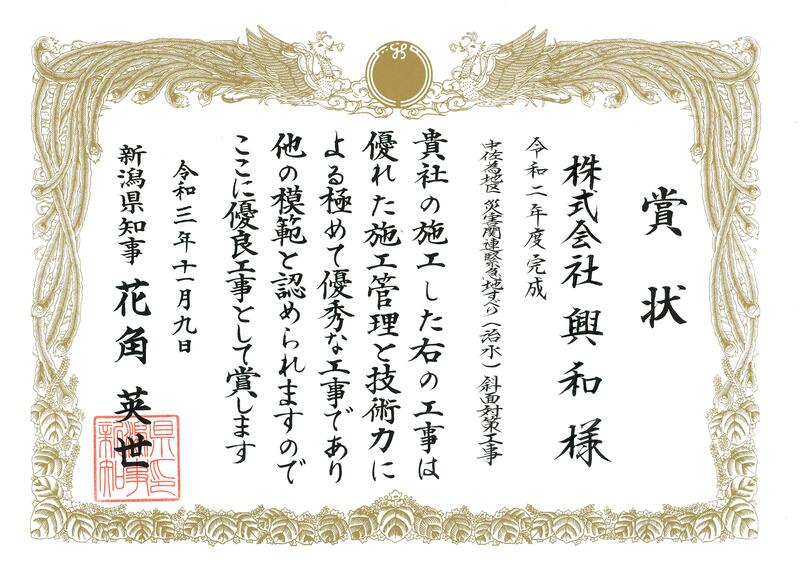 賞状
株式会社 興和 様
令和二年度完成
中佐為地区 災害関連緊急地すべり(治水)斜面対策工事
貴社の施工した右の工事は
優れた施工管理と技術力に
よる極めて優秀な工事であり
他の模範と認められますので
ここに優良工事として賞します
令和三年十一月九日
新潟県知事 花角 英世